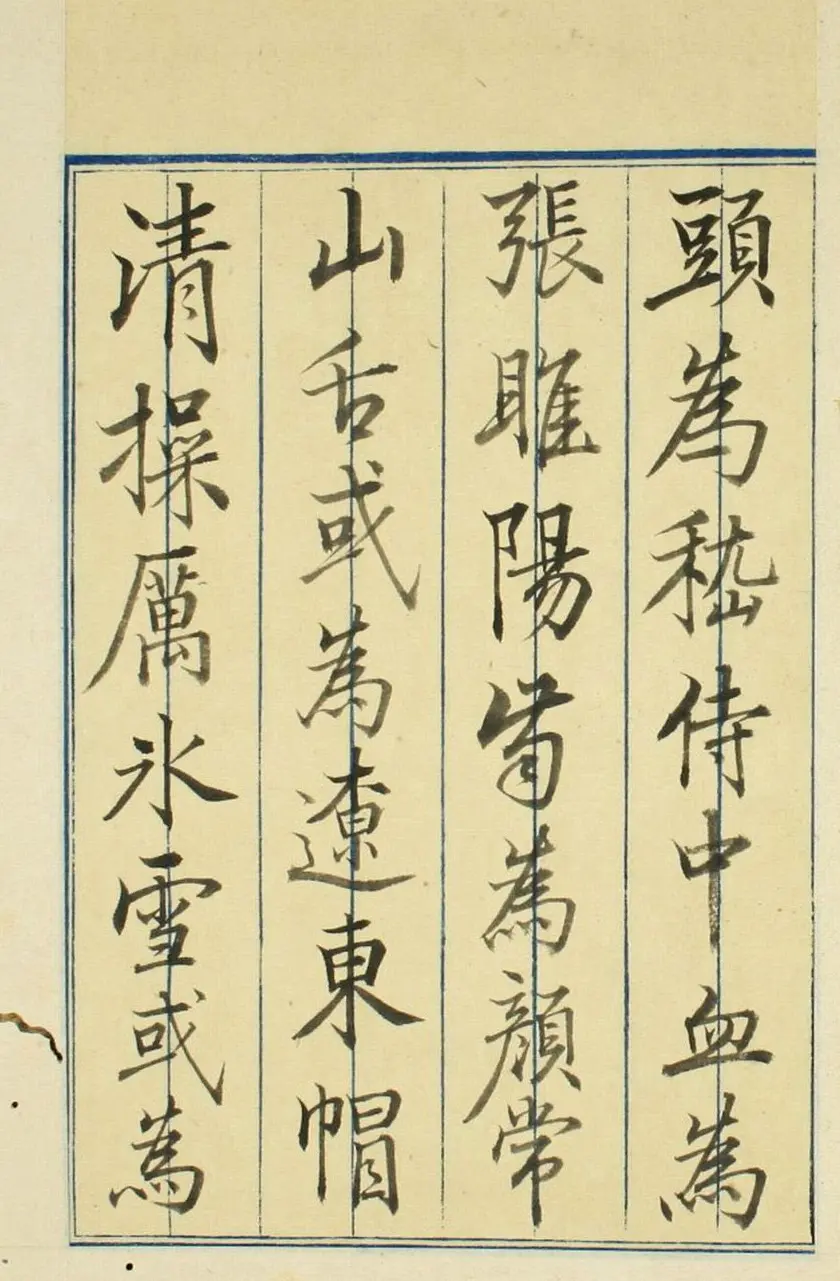 頭為嵇侍中血為
張睢陽齒為顏常
山舌或為遼東帽
清操厲氷雪或為